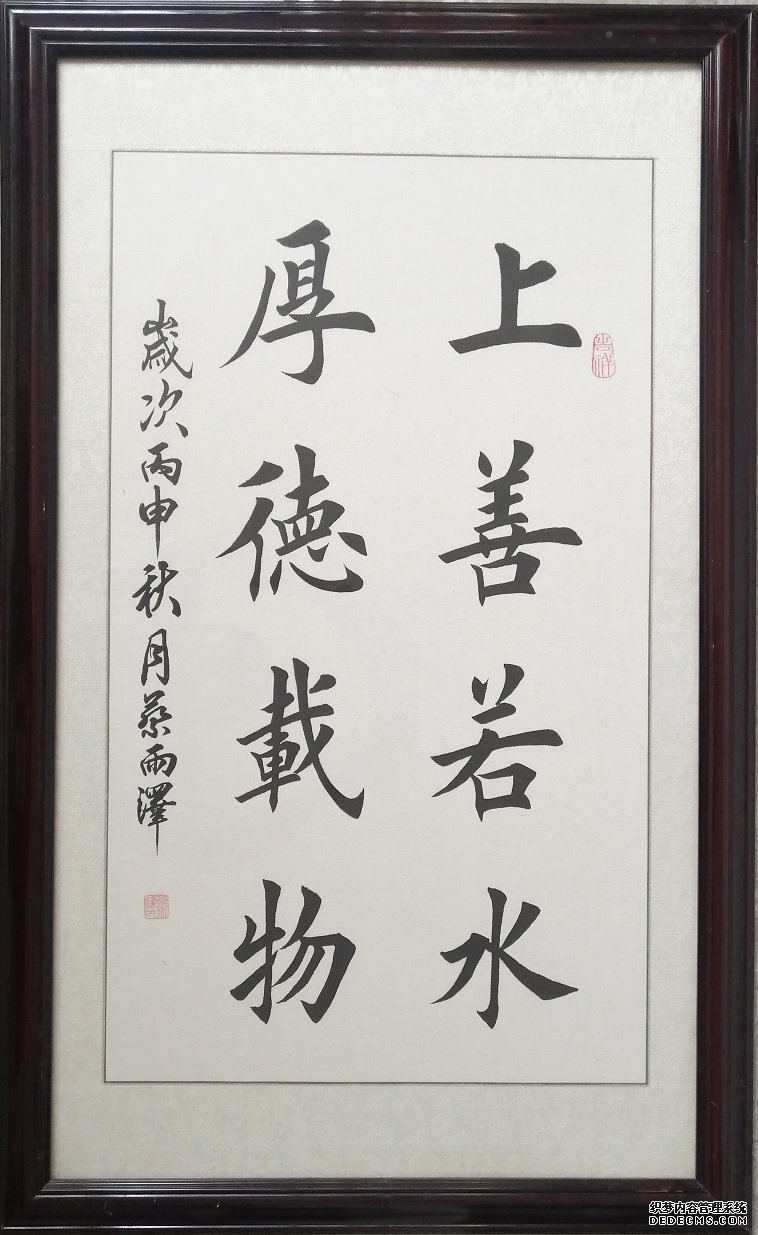 上善若水
厚德載物
歲次丙申秋月蔡雨澤
吉祥
织梦内容管理系统
DEDECMS.COM